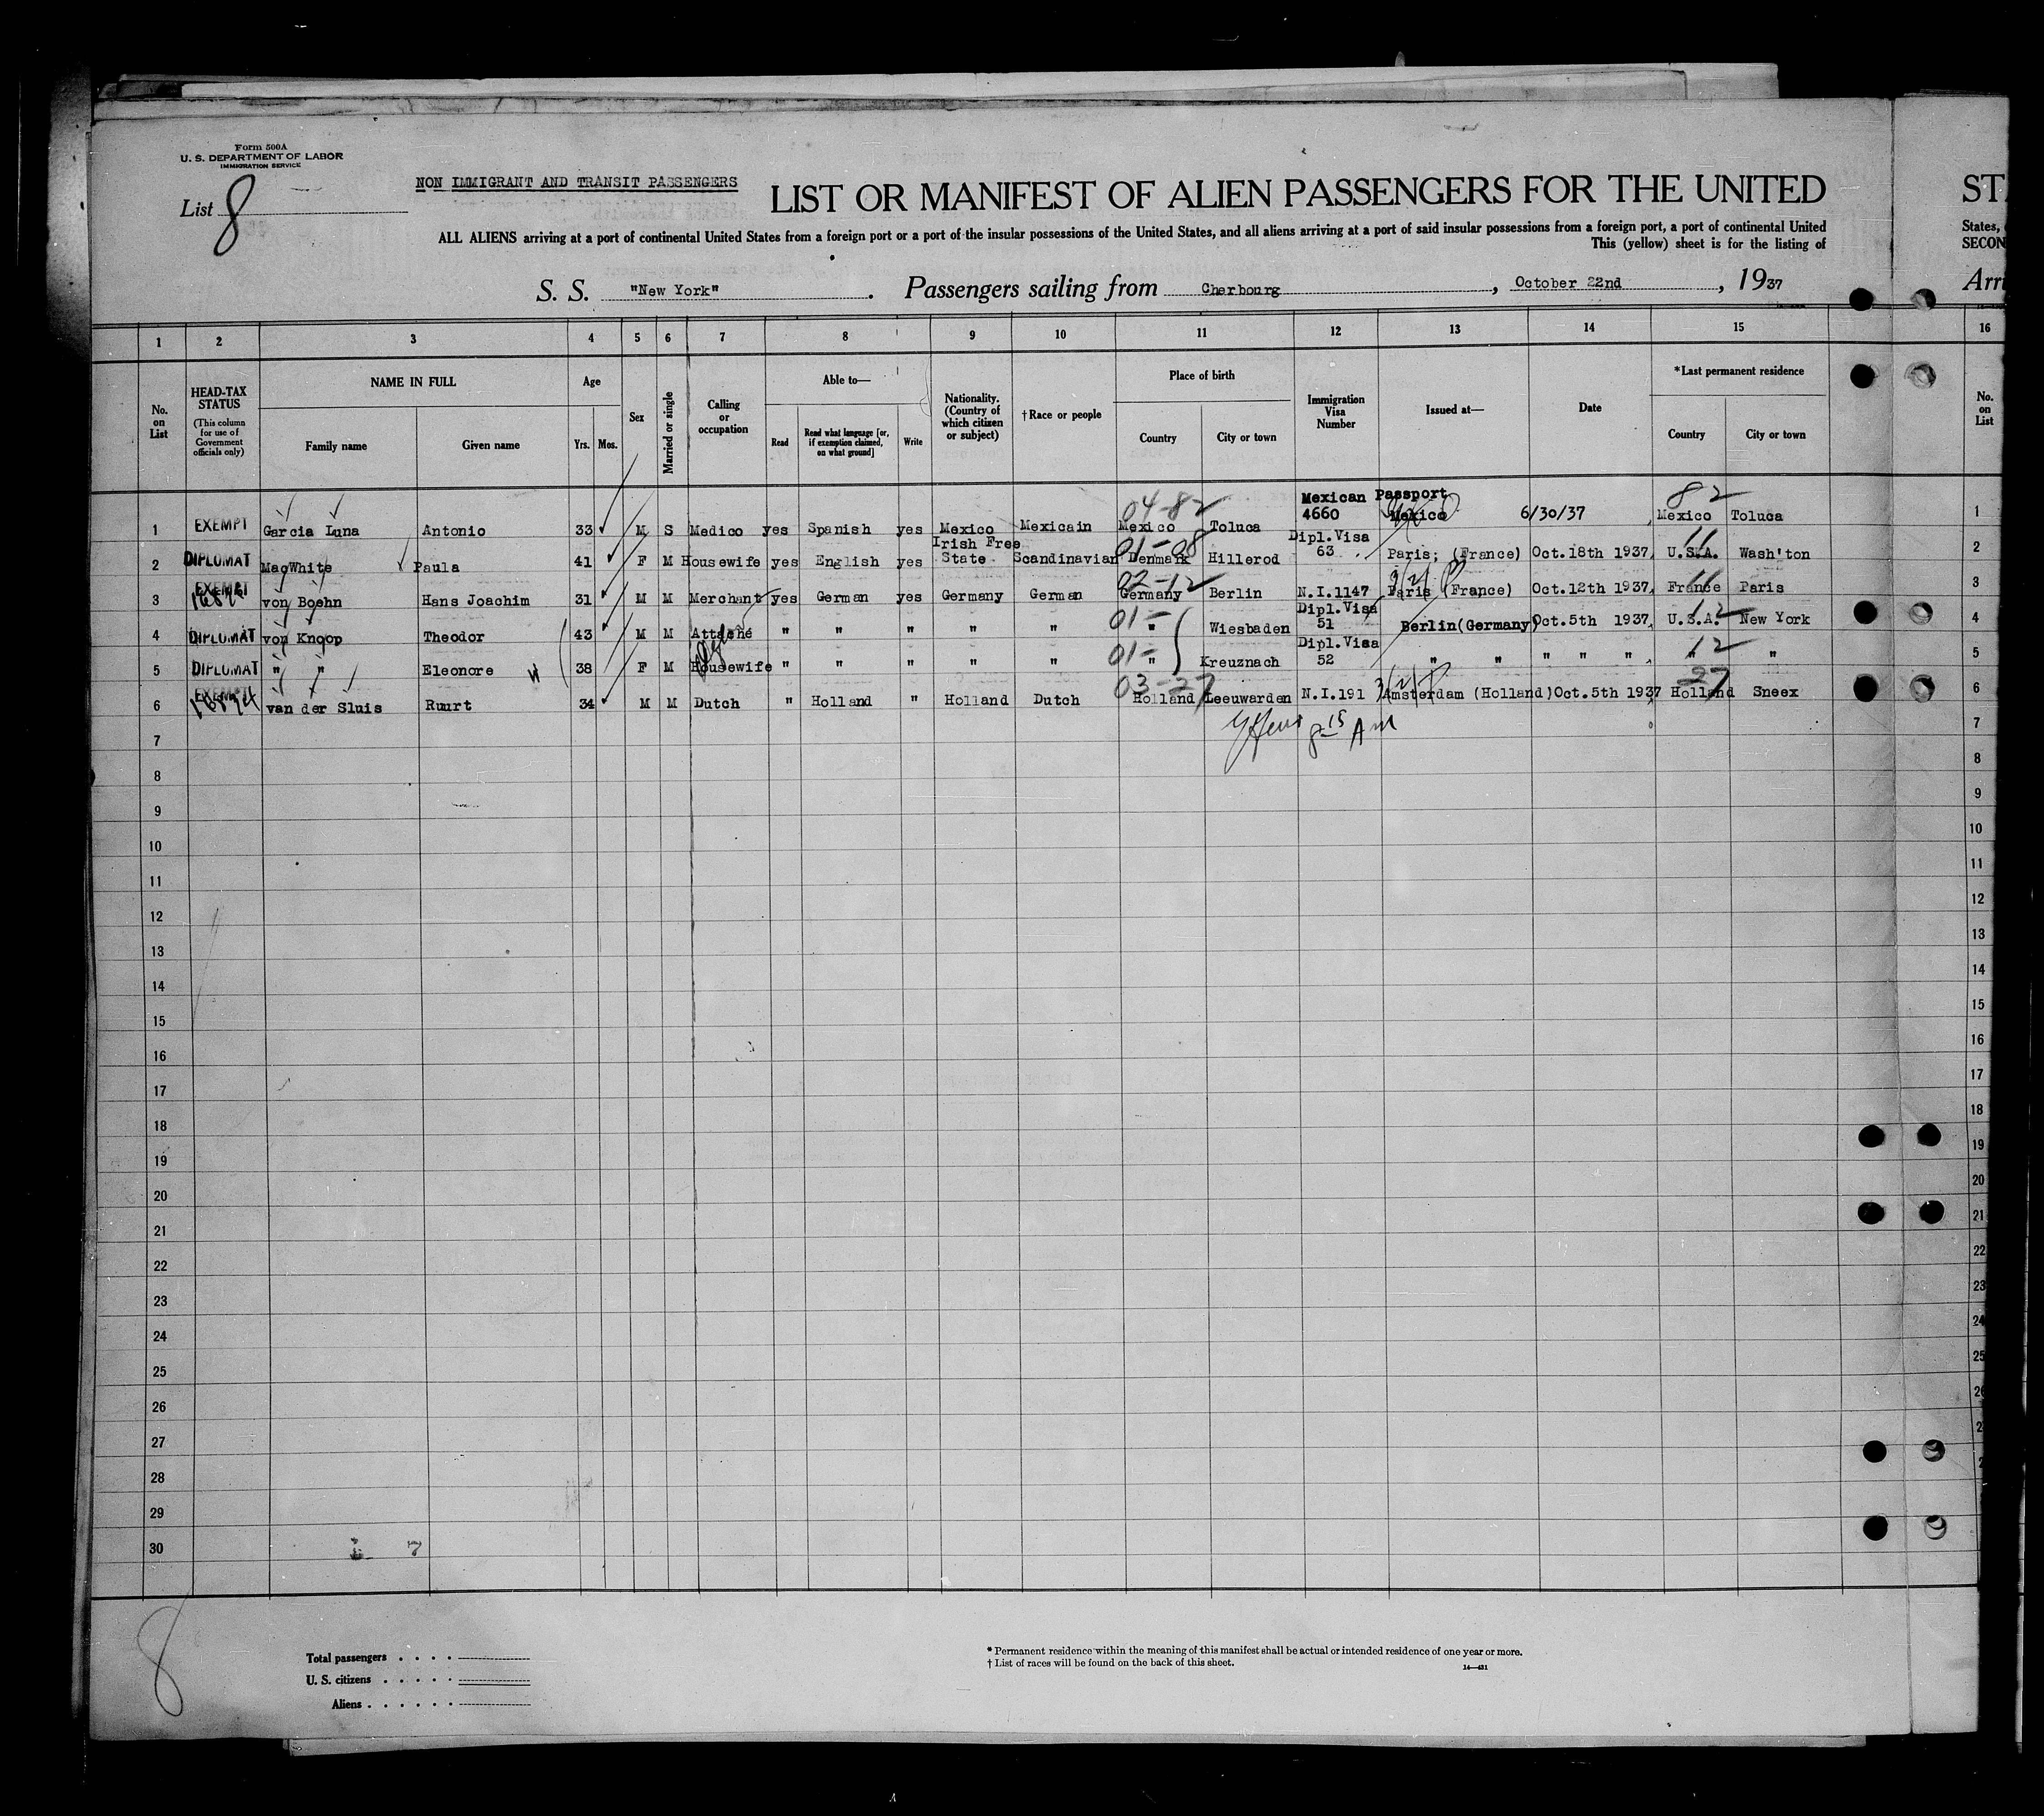 Form 500A
U. S. DEPARTMENT OF LABOR
IMMIGRATION SERVICE
List 8
NON IMMIGRANT AND TRANSIT PASSENGERS
LIST OR MANIFEST OF ALIEN PASSENGERS FOR THE UNITED
ST
ALL ALIENS arriving at a port of continental United States from a foreign port or a port of the insular possessions of the United States, and all aliens arriving at a port of said insular possessions from a foreign port, a port of continental United
States,
This (yellow) sheet is for the listing of
SECON
S. S. "New York". Passengers sailing from Cherbourg, October 22nd, 1937
Arri
1 2 3 4 5 6 7 8 9 10 11 12 13 14 15 16
No. on List
HEAD-TAX STATUS
(This column for use of Government officials only)
NAME IN FULL
Family name Given name
Age
Yrs. Mos.
Sex
Married or single
Calling or occupation
Able to—
Read
Read what language [or, if exemption claimed, on what ground]
Write
Nationality. (Country of which citizen or subject)
†Race or people
Place of birth
Country City or town
Immigration Visa Number
Issued at—
Date
*Last permanent residence
Country City or town
No. on List
04-82 Mexican Passport 82
1 EXEMPT Garcia Luna Antonio 33 M S Medico yes Spanish yes Mexico Mexicain Mexico Toluca 4660 Mexico 6/30/37 Mexico Toluca 1
Irish Free 01-08 Dipl.Visa 11
2 DIPLOMAT MacWhite Paula 41 F M Housewife yes English yes State Scandinavian Denmark Hillerod 63 Paris; (France) Oct.18th 1937 U.S.A. Wash'ton 2
EXEMPT 02-12 11
3 von Boehn Hans Joachim 31 M M Merchant yes German yes Germany German Germany Berlin N.I.1147 Paris (France) Oct.12th 1937 France Paris 3
01- Dipl.Visa 12
4 DIPLOMAT von Knoop Theodor 43 M M Attaché " " " " " " Wiesbaden 51 Berlin(Germany) Oct.5th 1937 U.S.A. New York 4
01- Dipl.Visa 12
5 DIPLOMAT " " Eleonore 38 F M Housewife " " " " " " Kreuznach 52 " " " " " " " 5
EXEMPT 03-27 27
6 van der Sluis Ruurt 34 M M Dutch " Holland " Holland Dutch Holland Leeuwarden N.I.191 Amsterdam (Holland) Oct.5th 1937 Holland Sneex 6
8-15 AM
7 7
8 8
9 9
10 10
11 11
12 12
13 13
14 14
15 15
16 16
17 17
18 18
19 19
20 20
21 21
22 22
23 23
24 24
25 25
26
27
28
29
30
7
8
Total passengers
U. S. citizens
Aliens
* Permanent residence within the meaning of this manifest shall be actual or intended residence of one year or more.
† List of races will be found on the back of this sheet.
14—421